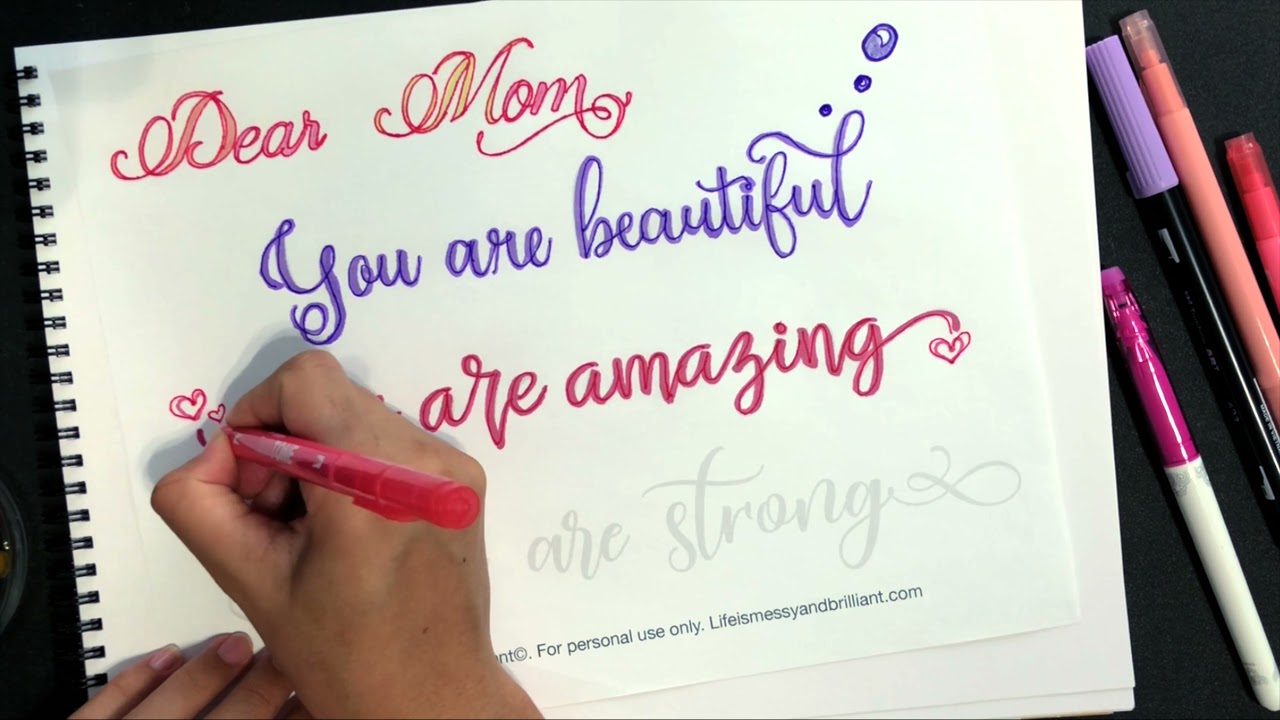 Dear Mom
You are beautiful
are amazing
are strong
For personal use only. Lifeismessyandbrilliant.com